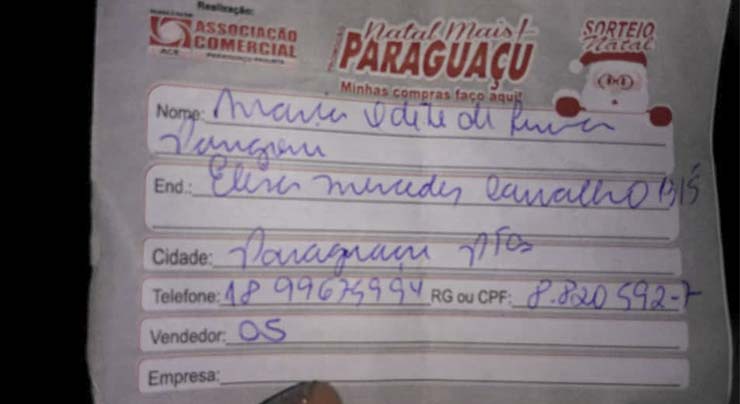 Realização:
ASSOCIAÇÃO
COMERCIAL
ACE PARAGUAÇU PAULISTA
Natal Mais!
PARAGUAÇU
Minhas compras faço aqui!
SORTEIO
Natal
Nome: Maria Odete de
End.: Mercedes Carvalho
Cidade: Paraguaçu Pta
Telefone: 18 99675994 RG ou CPF: 8.820592-7
Vendedor: 05
Empresa: